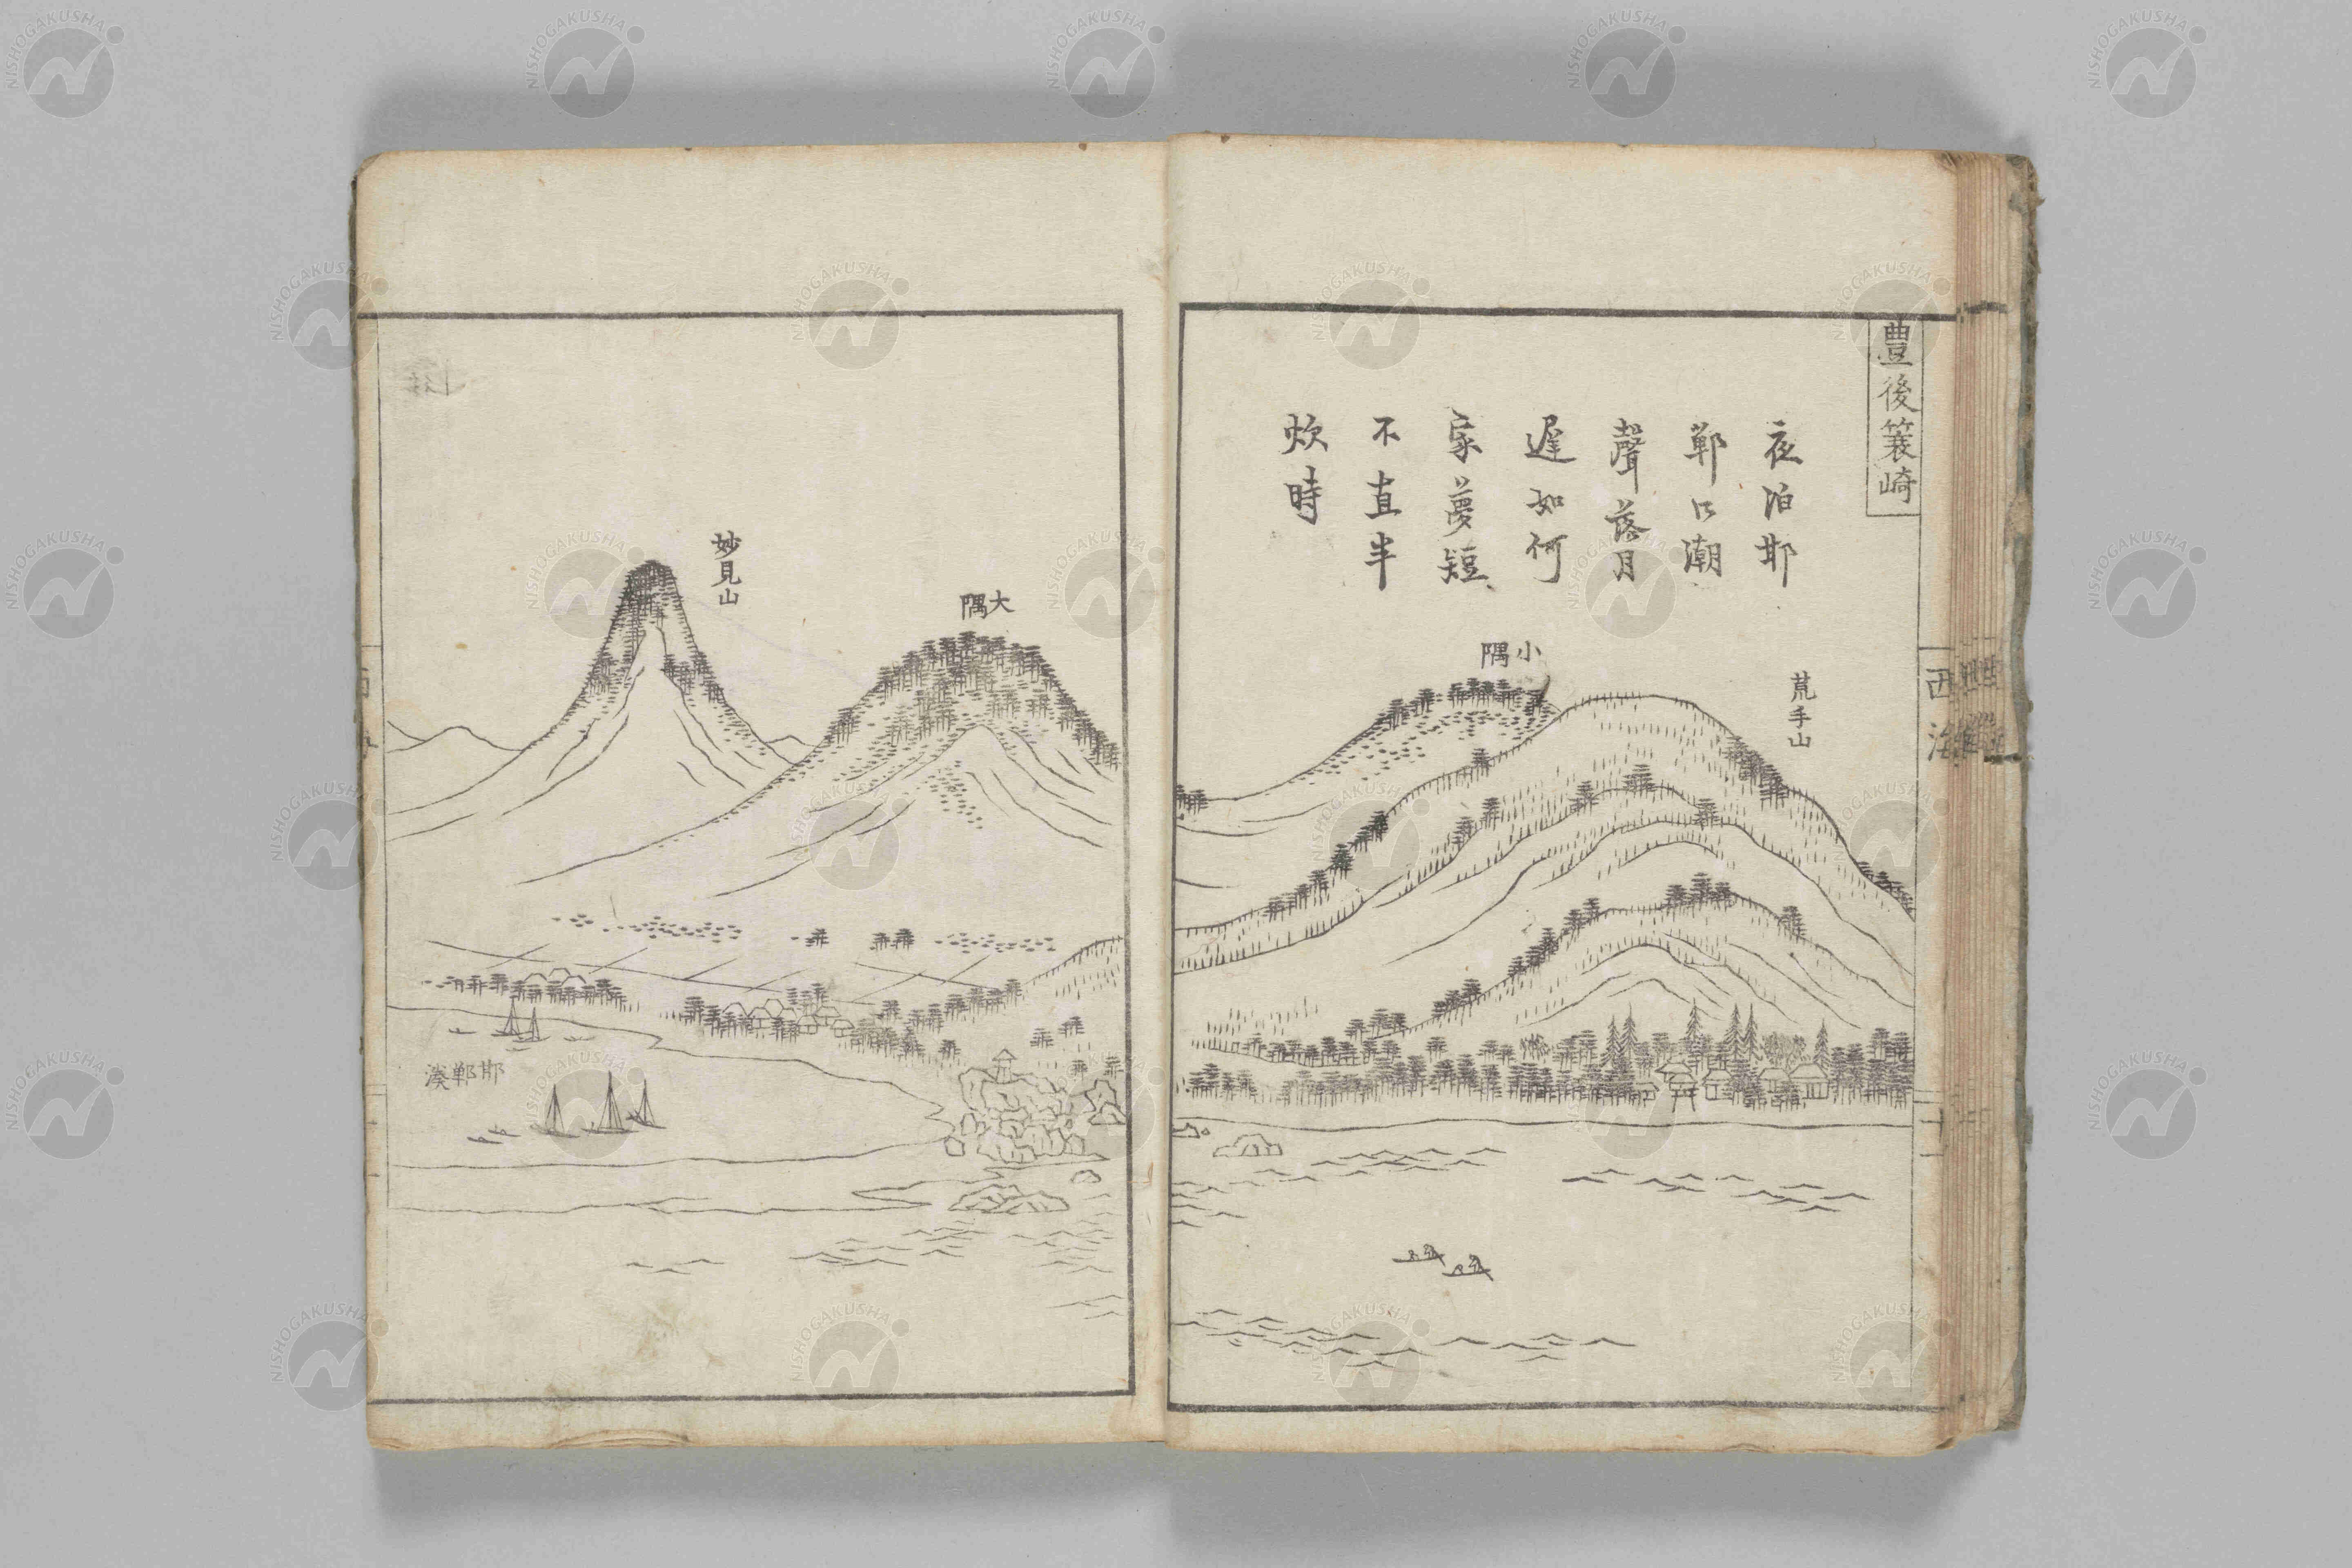 豊後簑崎
夜泊邯
鄲口潮
聲落月
遲如何
家夢短
不直半
炊時
荒手山
小隅
大隅
妙見山
邯鄲湊
西海
NISHOGAKUSHA